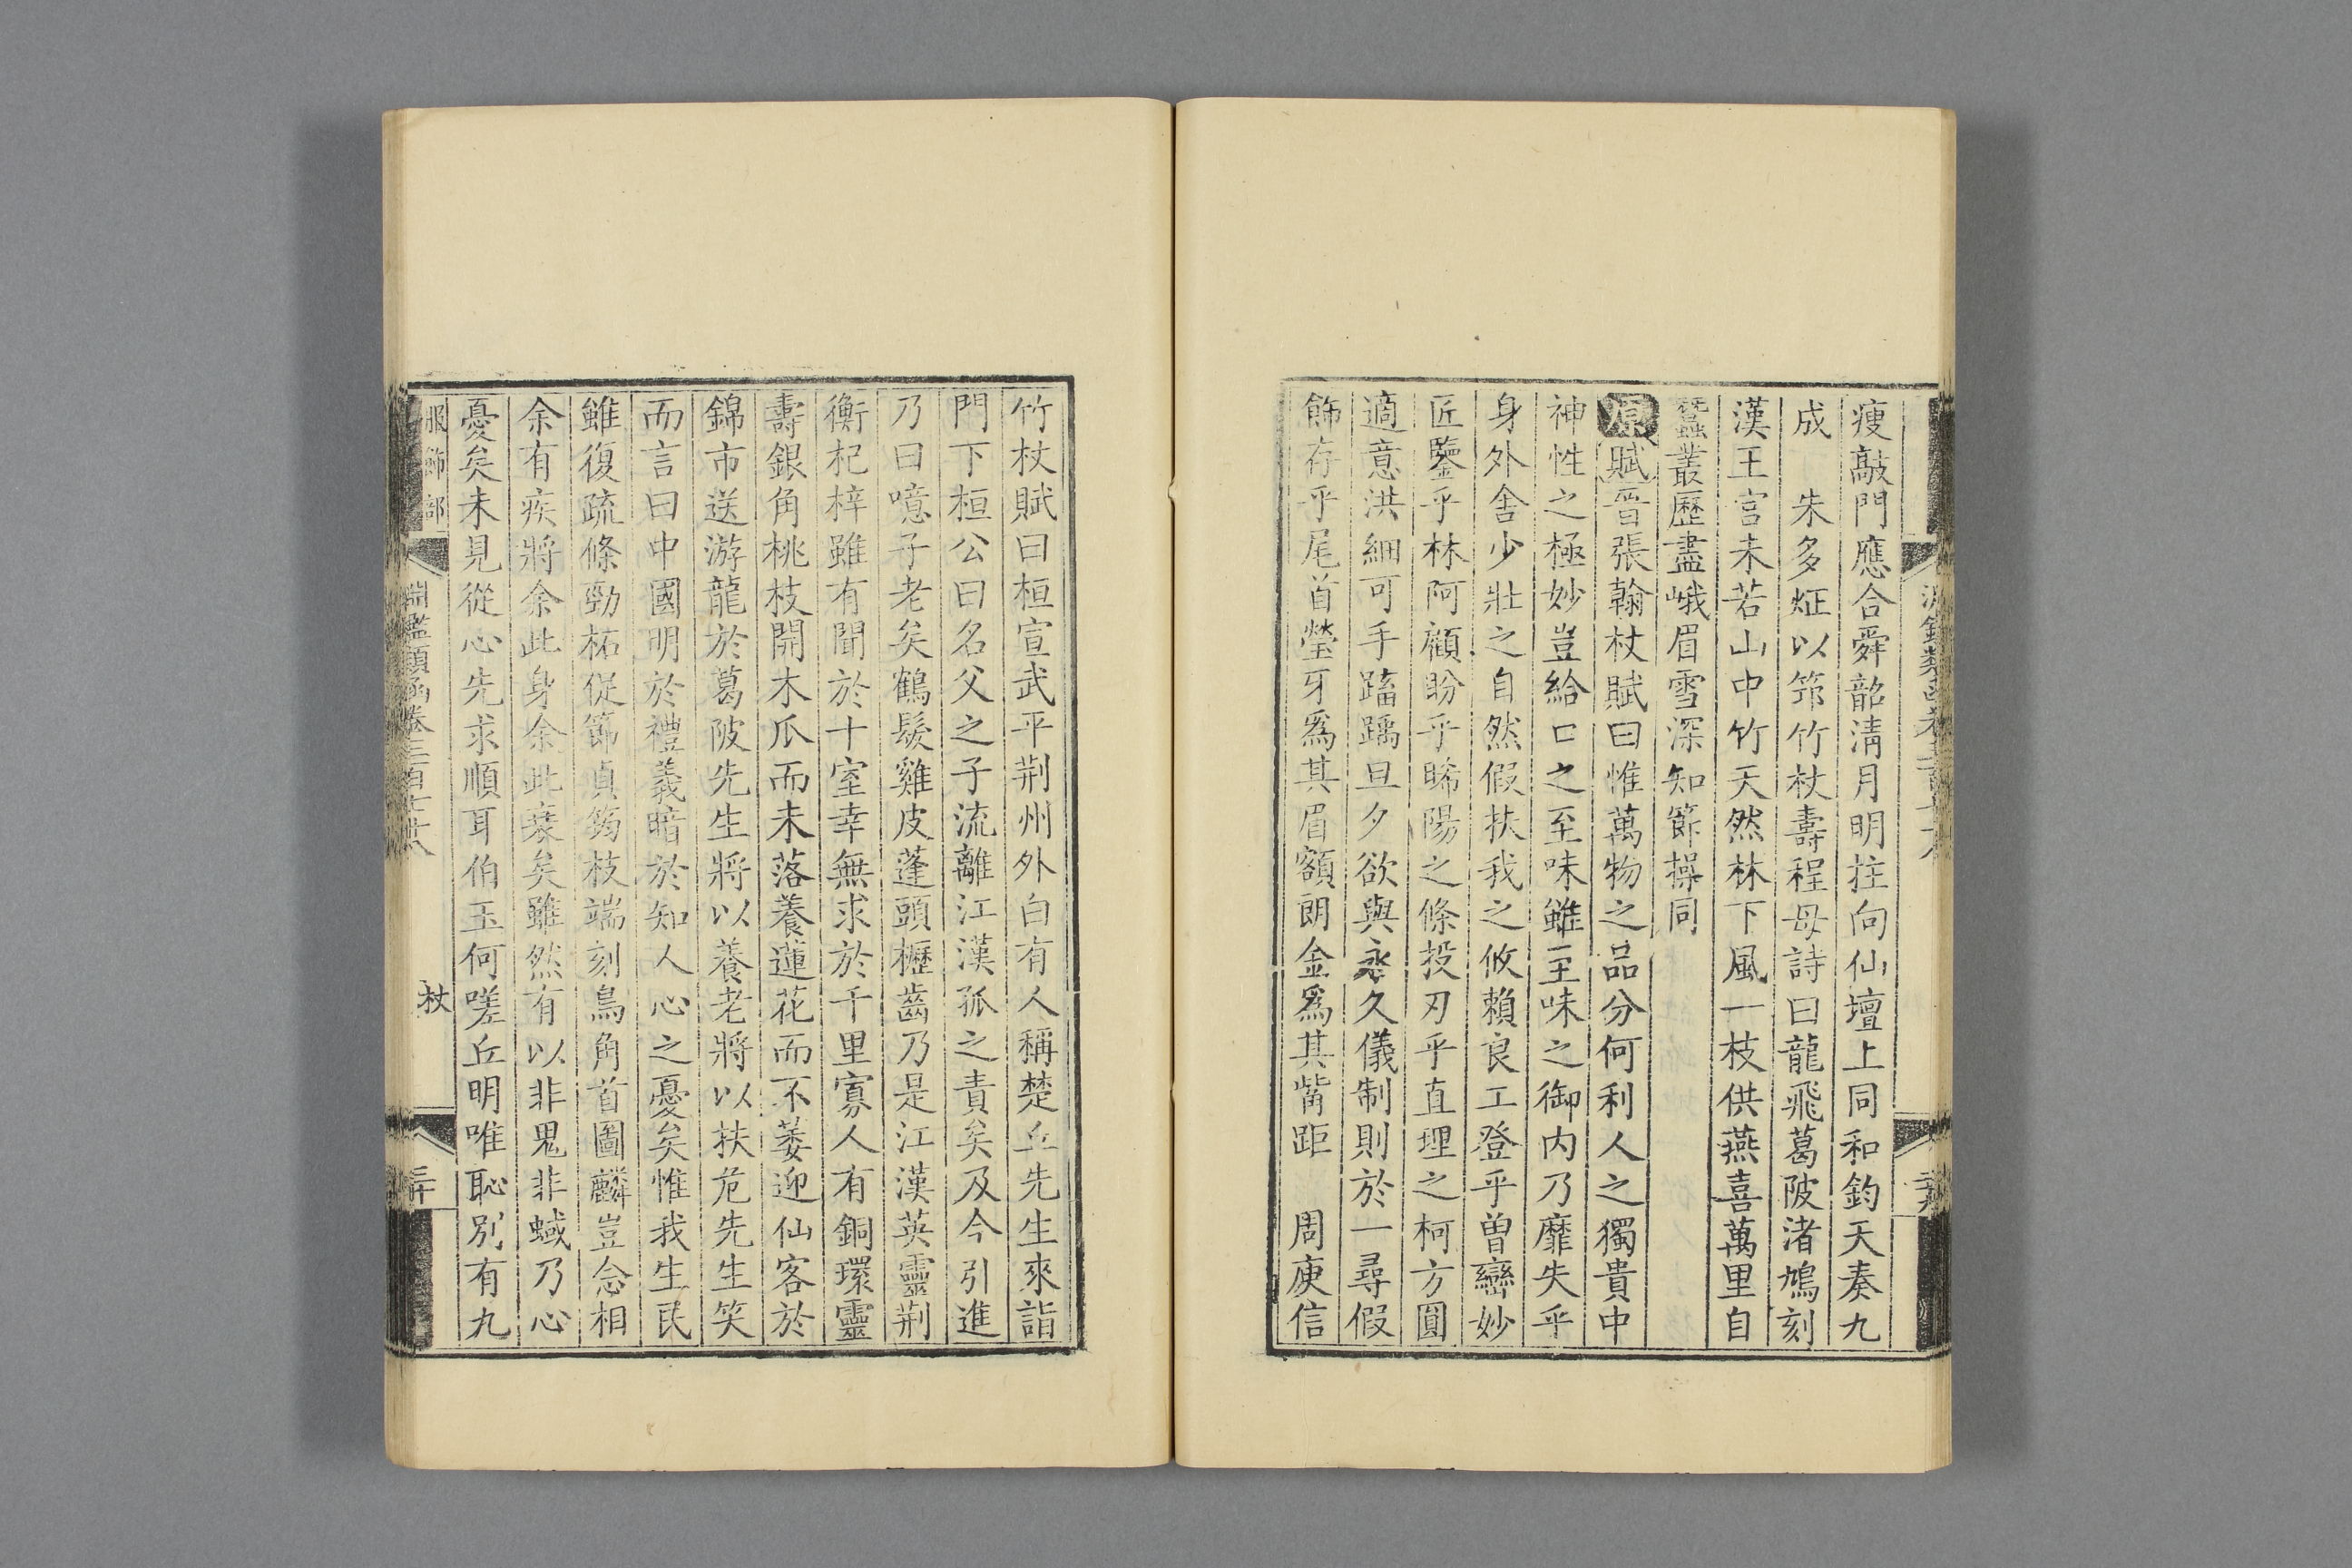 瘦敲門應合舜韶淸月明拄向仙壇上同和鈞天奏九
成 朱多炡以筇竹杖壽程母詩曰龍飛葛陂渚鳩刻
漢王宮未若山中竹天然林下風一枝供燕喜萬里自
蠶叢歷盡峨眉雪深知節操同
原賦晉張翰杖賦曰惟萬物之品分何利人之獨貴中
神性之極妙豈給口之至味雖至味之御内乃靡失乎
身外舍少壯之自然假扶我之攸賴良工登乎曽巒妙
匠鑒乎林阿顧盼乎晞陽之條投刃乎直理之柯方圓
適意洪細可手踏蹻旦夕欲與永久儀制則於一尋假
飾存乎尾首瑩牙爲其眉額朗金爲其觜距 周庾信
竹杖賦曰桓宣武平荆州外白有人稱楚丘先生來詣
門下桓公曰名父之子流離江漢孤之責矣及今引進
乃曰噫子老矣鶴髮雞皮蓬頭櫪齒乃是江漢英靈荆
衡杞梓雖有聞於十室幸無求於千里寡人有銅環靈
壽銀角桃枝開木瓜而未落養蓮花而不萎迎仙客於
錦市送游龍於葛陂先生將以養老將以扶危先生笑
而言曰中國明於禮義暗於知人心之憂矣惟我生民
雖復疏條勁柘促節貞筠枝端刻鳥角首圖麟豈念相
余有疾將余此身余此衰矣雖然有以非鬼非蜮乃心
憂矣未見從心先求順耳伯玉何嗟丘明唯恥別有九
服飾部 淵鑑類函卷三百七十八 杖 三十